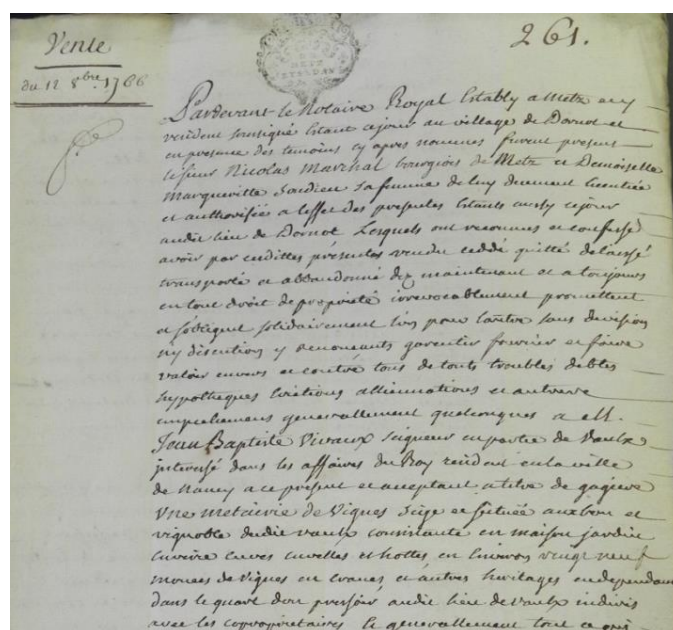 Vente
du 12 8bre 1766
261.
METZ
Pardevant le Notaire Royal Estably a Metz et y
resident soussigné Estant cejour au village de Dornot et
en presence des temoins cy apres nommés furent present
le sieur Nicolas Marchal bourgeois de Metz et Demoiselle
Margueritte sa femme de luy duement licentiée
et authorisée a leffet des presentes Estants aussy cejour
audit lieu de Dornot Lesquels ont reconnus et confessé
avoir par cesdittes présentes vendu ceddé quitté delaissé
transporté et abandonné dez maintenant et a toujours
en tout droit de proprieté irrevocablement promettent
et sobligent solidairement lun pour lautre sans division
ny discution y renonceants garentir fournir et faire
valoir envers et contre tous de touts troubles debtes
hypotheques Evictions alliennations et autres
empechemens generallement quelconques a M.
Jean Baptiste Vivaux seigneur en partie de Vaulx
interessé dans les affaires du Roy residant en la ville
de Nancy a ce present et acceptant a titre de gagiere
Une metairie de Vignes Size et scituée aux ban et
vignoble dudit vaulx consistante en maison jardin
cuves cuvelles et hottes, en Environ vingt neuf
mouées de Vignes en et autres heritages en dependans
dans le quart dun pressoir audit lieu de vaulx indivis
avec les coproprietaires Et generallement tout ce qui